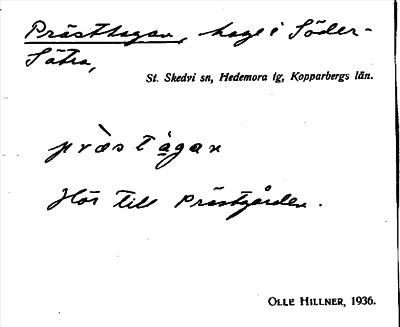 Prästhagan, hage i Söder-
Sätra,
St. Skedvi sn, Hedemora tg, Kopparbergs län.
pr̀æstágan
Hör till Prästgården.
OLLE HILLNER, 1936.